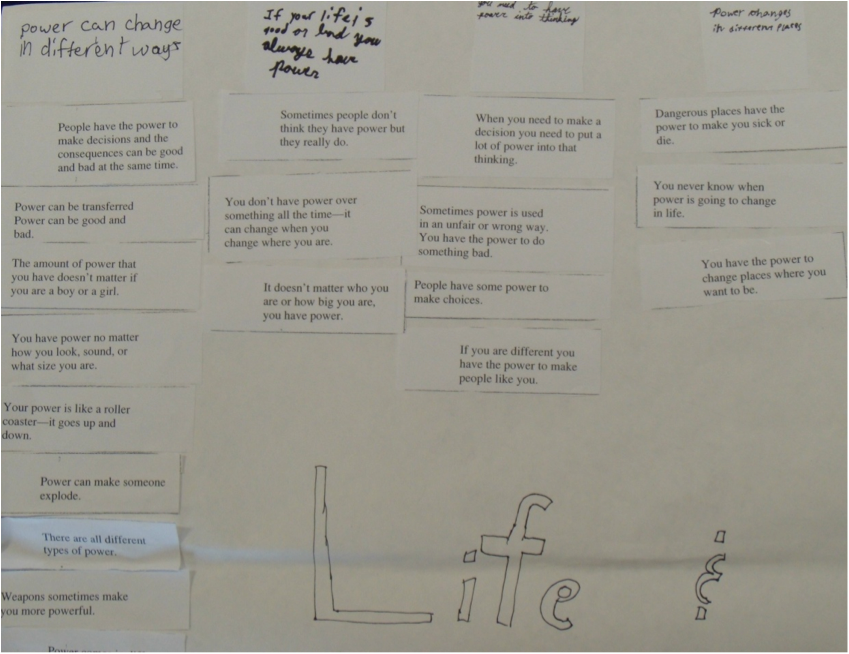 power can change
in different ways
People have the power to
make decisions and the
consequences can be good
and bad at the same time.
Power can be transferred
Power can be good and
bad.
The amount of power that
you have doesn't matter if
you are a boy or a girl.
You have power no matter
how you look, sound, or
what size you are.
Your power is like a roller
coaster—it goes up and
down.
Power can make someone
explode.
There are all different
types of power.
Weapons sometimes make
you more powerful.
Power
If your life is
good or bad you
always have
power
Sometimes people don't
think they have power but
they really do.
You don't have power over
something all the time—it
can change when you
change where you are.
It doesn't matter who you
are or how big you are,
you have power.
you need to have
power into thinking
When you need to make a
decision you need to put a
lot of power into that
thinking.
Sometimes power is used
in an unfair or wrong way.
You have the power to do
something bad.
People have some power to
make choices.
If you are different you
have the power to make
people like you.
Power changes
in different places
Dangerous places have the
power to make you sick or
die.
You never know when
power is going to change
in life.
You have the power to
change places where you
want to be.
Life &